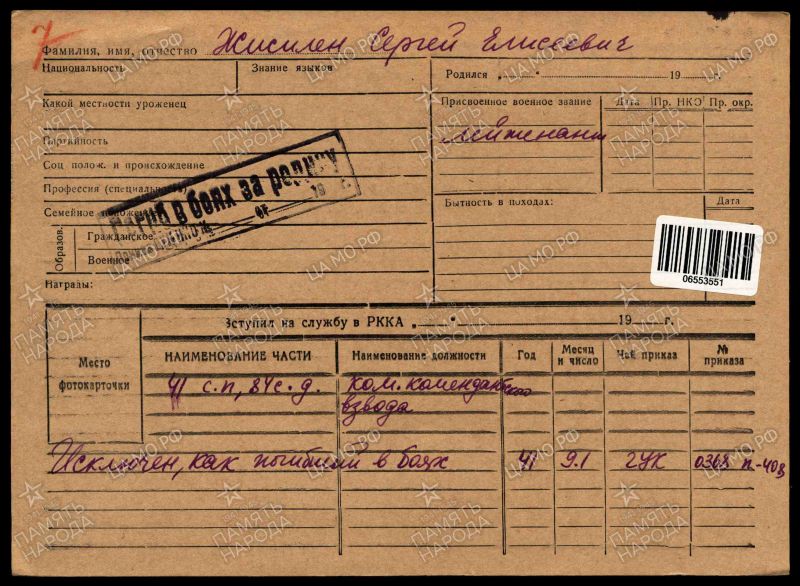 7
Фамилия, имя, отчество Жисилен Сергей Елисеевич
Национальность
Знание языков
Родился " 19 г.
Какой местности уроженец
Присвоенное военное звание
Дата Пр. НКО Пр. окр.
лейтенант
Партийность
Соц полож. и происхождение
Профессия (специальность)
Погиб в боях за родину
от 19 г.
Семейное положение
Бытность в походах:
Дата
Образов.
Гражданское
Военное
06553551
Награды:
Вступил на службу в РККА " 19 г.
Место фотокарточки
НАИМЕНОВАНИЕ ЧАСТИ
Наименование должности
Год
Месяц и число
Чей приказ
№ приказа
41 с.п, 84 с.д. ком. комендантского
взвода
Исключен, как погибший в боях 41 9.1 ГУК 0368 п-40в
ПАМЯТЬ НАРОДА
ЦА МО.РФ